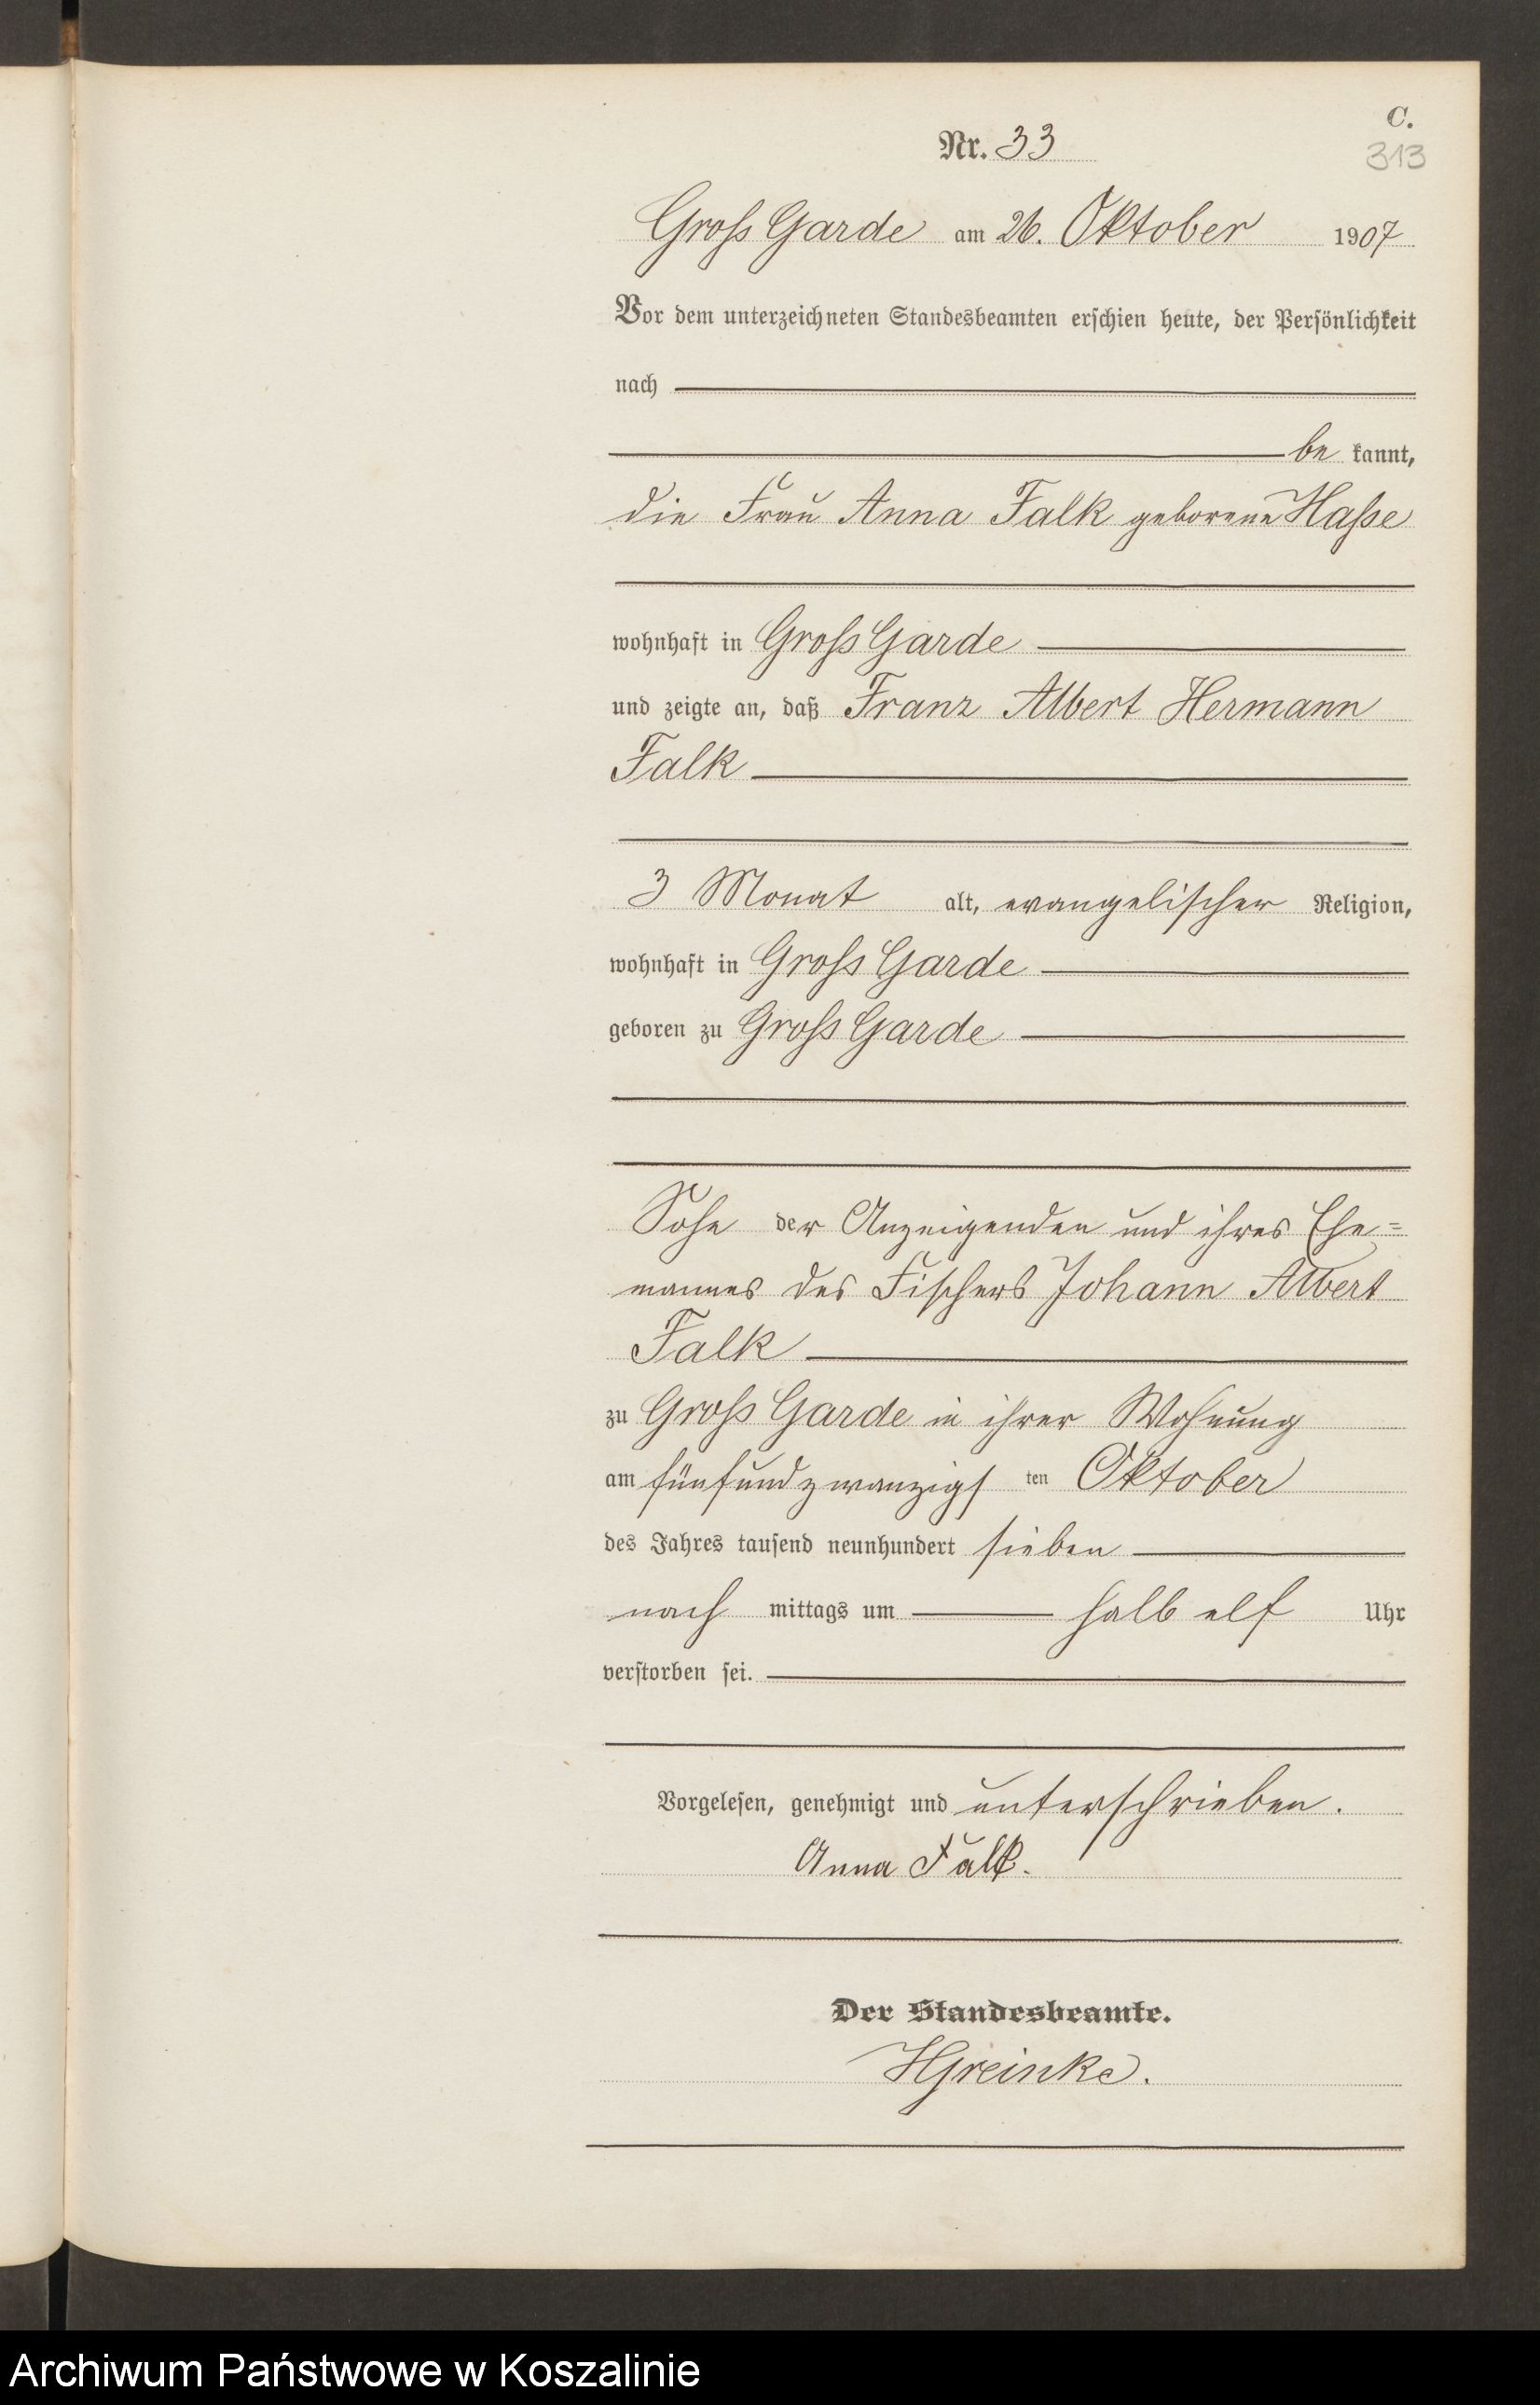 C.
Nr. 33
313
Gross Garde am 26. Oktober 1907
Vor dem unterzeichneten Standesbeamten erschien heute, der Persönlichkeit
nach
be kannt,
die Frau Anna Falk geborene Haße
wohnhaft in Gross Garde
und zeigte an, daß Franz Albert Hermann
Falk
3 Monat alt, evangelischer Religion,
wohnhaft in Gross Garde
geboren zu Gross Garde
Sohn der Anzeigenden und ihres Ehe=
mannes des Fischers Johann Albert
Falk
zu Gross Garde in ihrer Wohnung
am fünfundzwanzigs ten Oktober
des Jahres tausend neunhundert sieben
nach mittags um halb elf Uhr
verstorben sei.
Vorgelesen, genehmigt und unterschrieben.
Anna Falk.
Der Standesbeamte.
HGreinke.
Archiwum Państwowe w Koszalinie